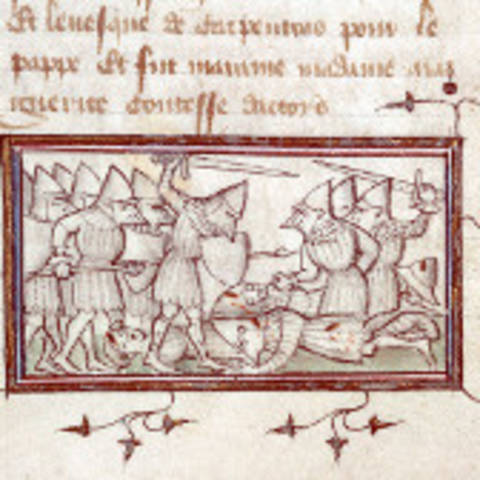 Et levesque de carpentras pour le
pappe Et fut marraine madame mar
guerite contesse dartois